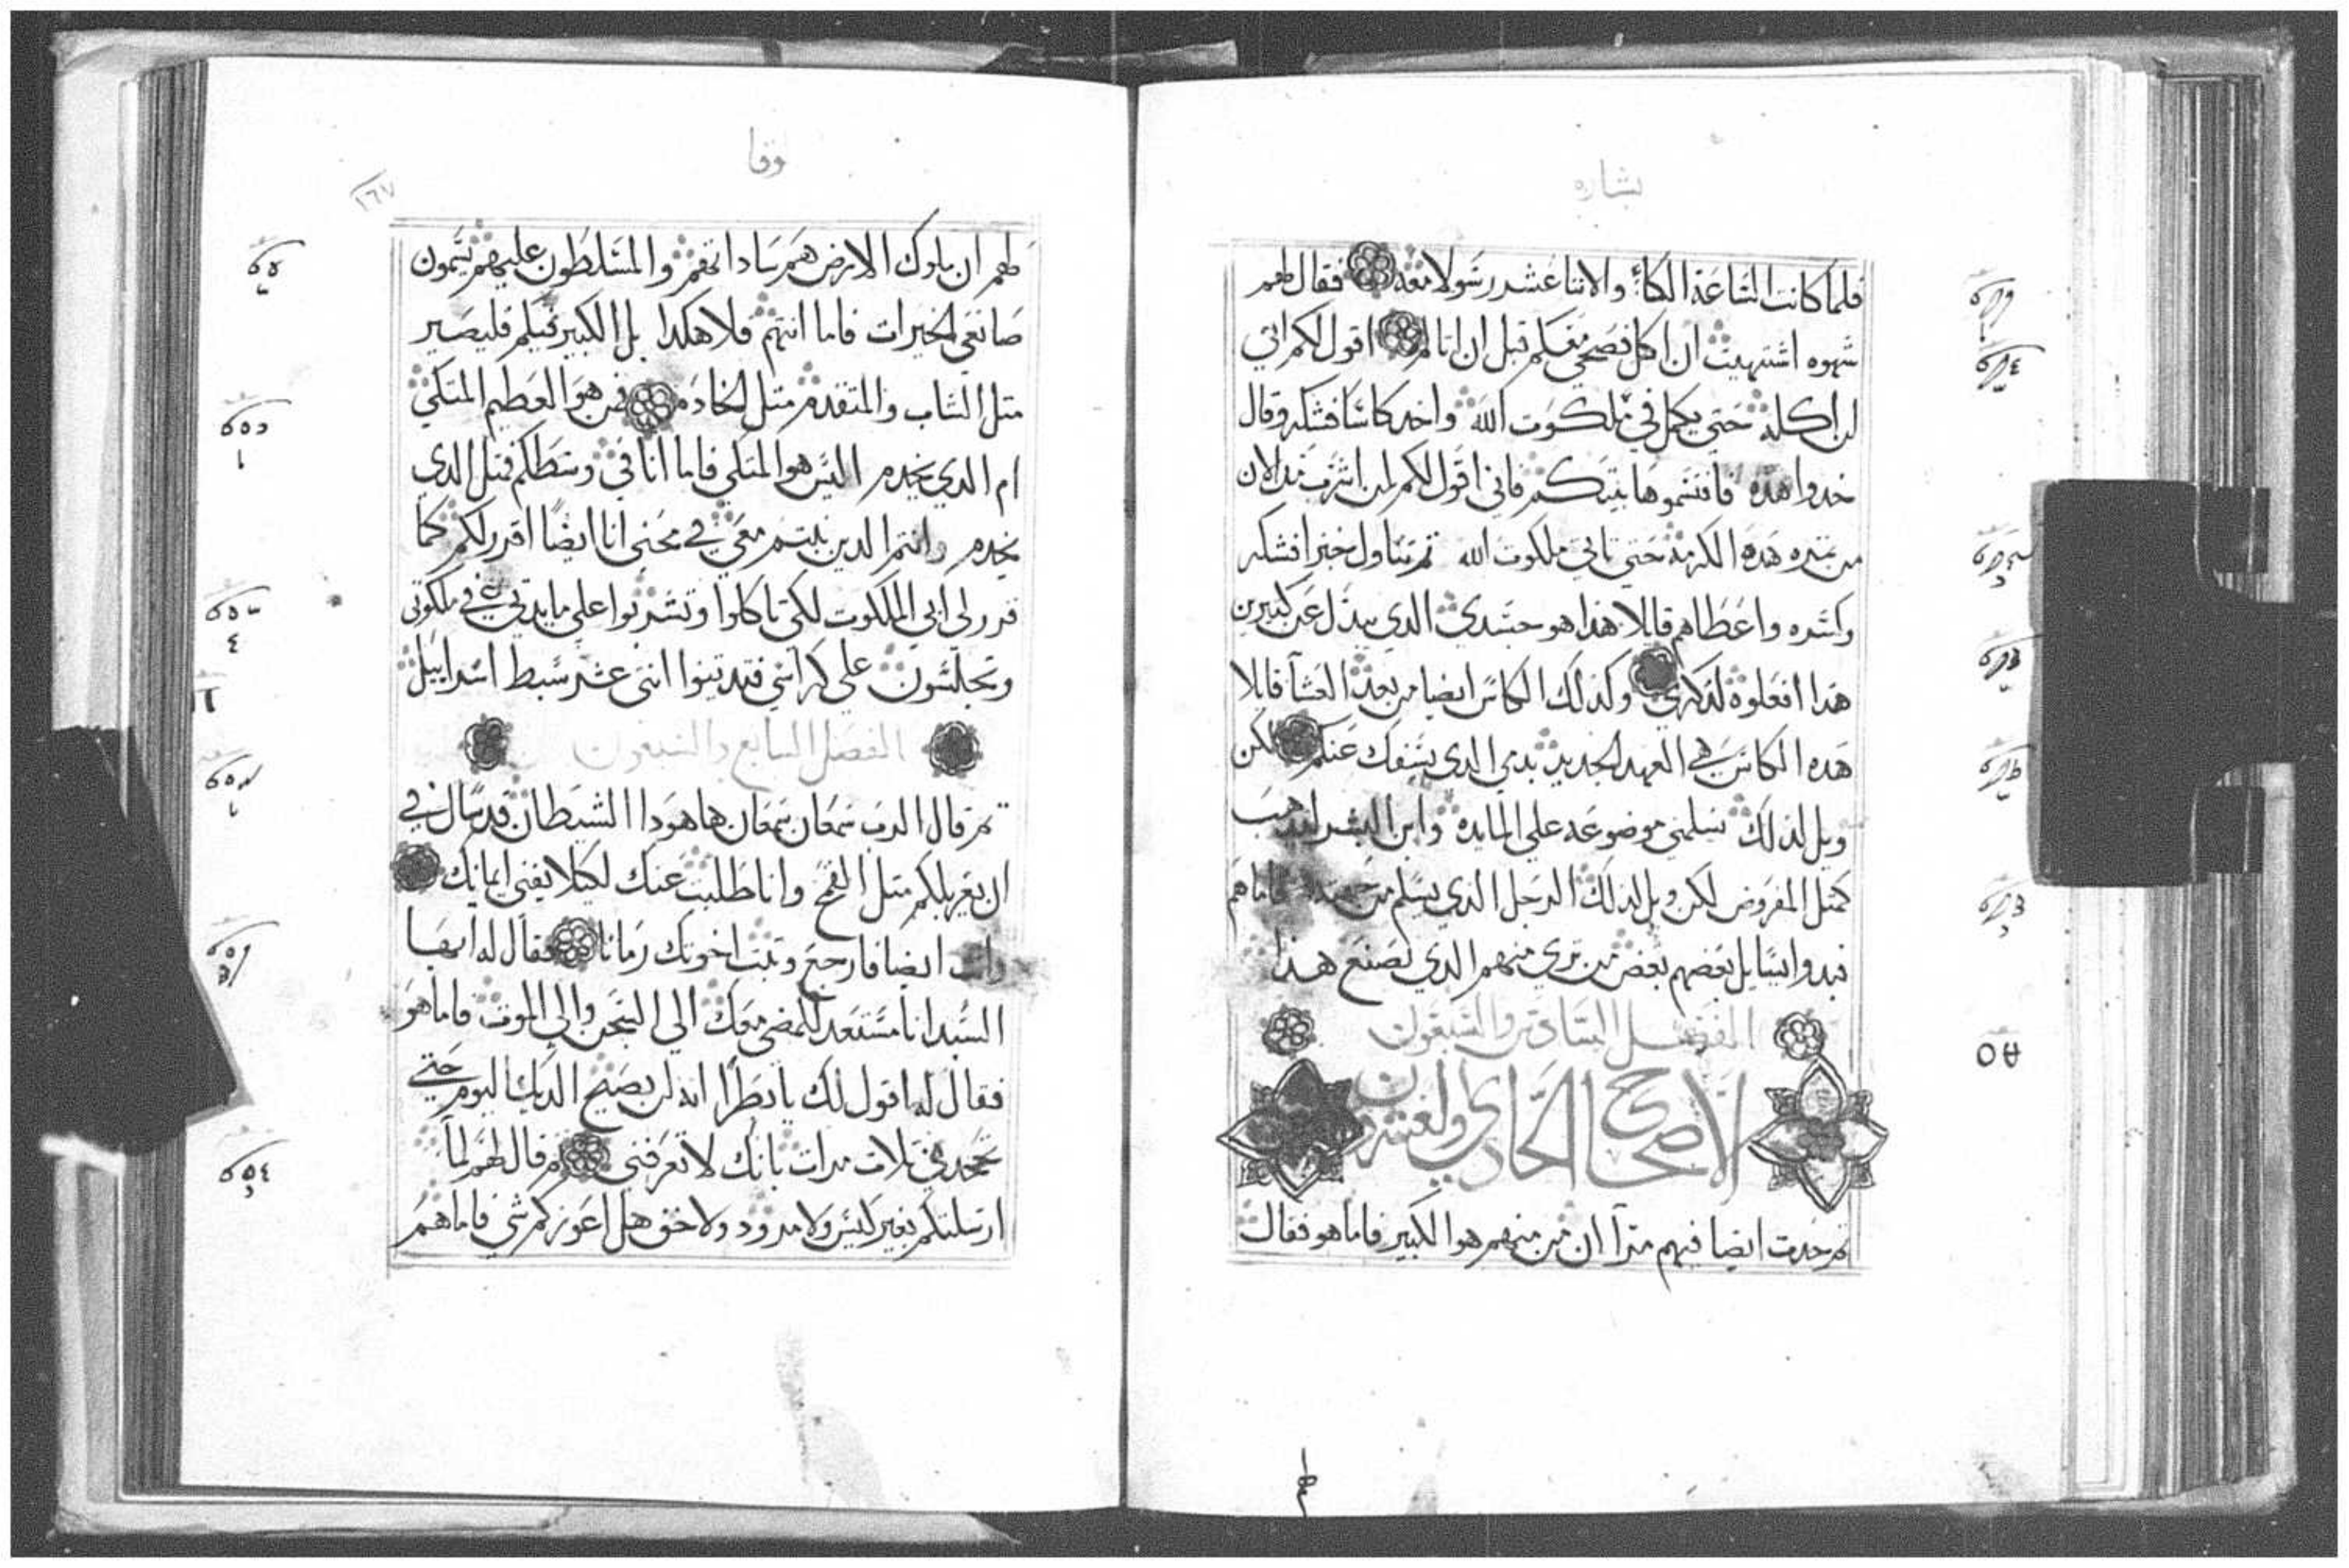 بشاره
فلما كانت الساعة اتكأ والاتنا عشر رسولا معه فقال لهم
شهوه اشتهيت ان اكل فصحي معكم قبل ان اتالم اقول لكم اني
لن اكله حتي يكمل في ملكوت الله واخد كاسا فشكر وقال
خدوا هده فاقتسموها بينكم فاني اقول لكم لن اشرب مند الان
من تمره هده الكرمه حتي تاتي ملكوت الله تم تناول خبزا فشكر
وكسره واعطاهم قايلا هذا هو جسدي الدي يبدل عن كبيرين
هذا افعلوه لدكري وكذلك الكاس ايضا من بعد العشا قايلا
هده الكاس هي العهد الجديد بدمي الدي يسفك عنكم لكن
ويل لذلك تسلمني موضوعه علي المايده وابن البشر ليدهب
كمتل المفروض لكن ويل لذلك الرجل الذي يسلم من فاما هم
فبدوا يسايل بعضهم بعض من تري منهم الدي يصنع هذا
الفصل السادس والسبعون
الاصحاح الحادي والعشرون
تم حدت ايضا فيهم مرآ ان من منهم هو الكبير فاما هو فقال
لوقا
١٦٧
لهم ان ملوك الارض هم ساداتهم والمسلطون عليهم يسمون
صانعي الخيرات فاما انتم فلا هكدا بل الكبير فيكم فليصير
متل الشاب والمتقدم متل الخادم فمن هو العظيم المتكي
ام الدي يخدم اليس هو المتكي فاما انا في وسطكم فمتل الدي
يخدم وانتم الدين تبتم معي في محني انا ايضا اقرر لكم كما
قرر لي ابي الملكوت لكي تاكلوا وتشربوا علي مايدتي في ملكوتي
وتجلسون علي كراسي فتدينوا اتني عشر سبط اسراييل
الفصل السابع والسبعون
تم قال الرب سمعان سمعان ها هودا الشيطان قد سال في
ان يغربلكم متل القمح وانا طلبت عنك لكيلا يفني ايمانك
وانت ايضا فارجع وتبت اخوتك زمانا فقال له ايها
السيد انا مستعد للمضي معك الي السجن والي الموت فاما هو
فقال له اقول لك يا بطرا انه لن يصيح الديك اليوم حتي
تجحدني تلات مرات بانك لا تعرفني تم قال لهم لما
ارسلتكم بغير كيس ولا مدود ولا خف هل اعوزكم شي فاما هم